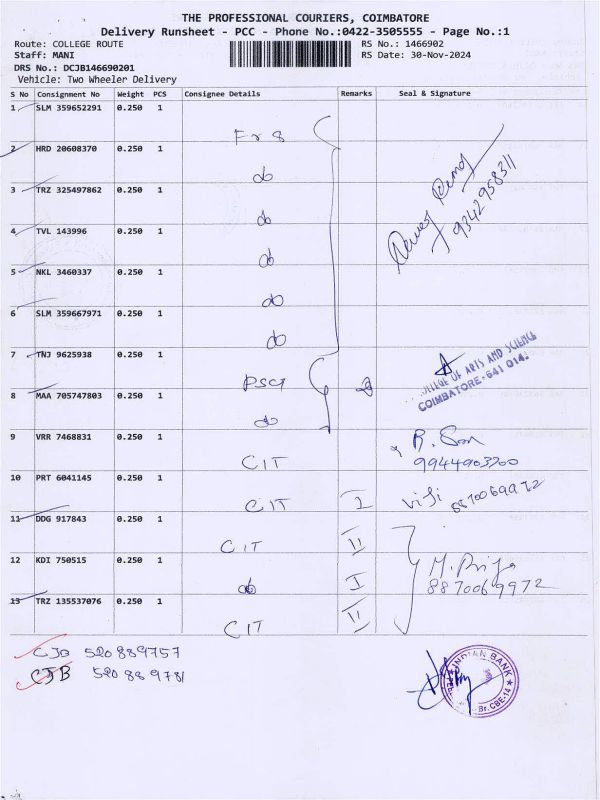 THE PROFESSIONAL COURIERS, COIMBATORE
Delivery Runsheet - PCC - Phone No.:0422-3505555 - Page No.:1
Route: COLLEGE ROUTE RS No.: 1466902
Staff: MANI RS Date: 30-Nov-2024
DRS No.: DCJB146690201
Vehicle: Two Wheeler Delivery
S No Consignment No Weight PCS Consignee Details Remarks Seal & Signature
1 SLM 359652291 0.250 1
2 HRD 20608370 0.250 1
do
3 TRZ 325497862 0.250 1
do
9342958311
4 TVL 143996 0.250 1
do
5 NKL 3460337 0.250 1
do
6 SLM 359667971 0.250 1
do
7 TNJ 9625938 0.250 1
PSG
COLLEGE OF ARTS AND SCIENCE
COIMBATORE-641 014.
8 MAA 705747803 0.250 1
do
9 VRR 7468831 0.250 1
CIT
9944903300
10 PRT 6041145 0.250 1
CIT I Viji 8870069972
11 DDG 917843 0.250 1
CIT II
12 KDI 750515 0.250 1
do I M. Priya
8870069972
13 TRZ 135537076 0.250 1
CIT II
CJB 520889757
CJB 520889781
INDIAN BANK
Br. CBE-14